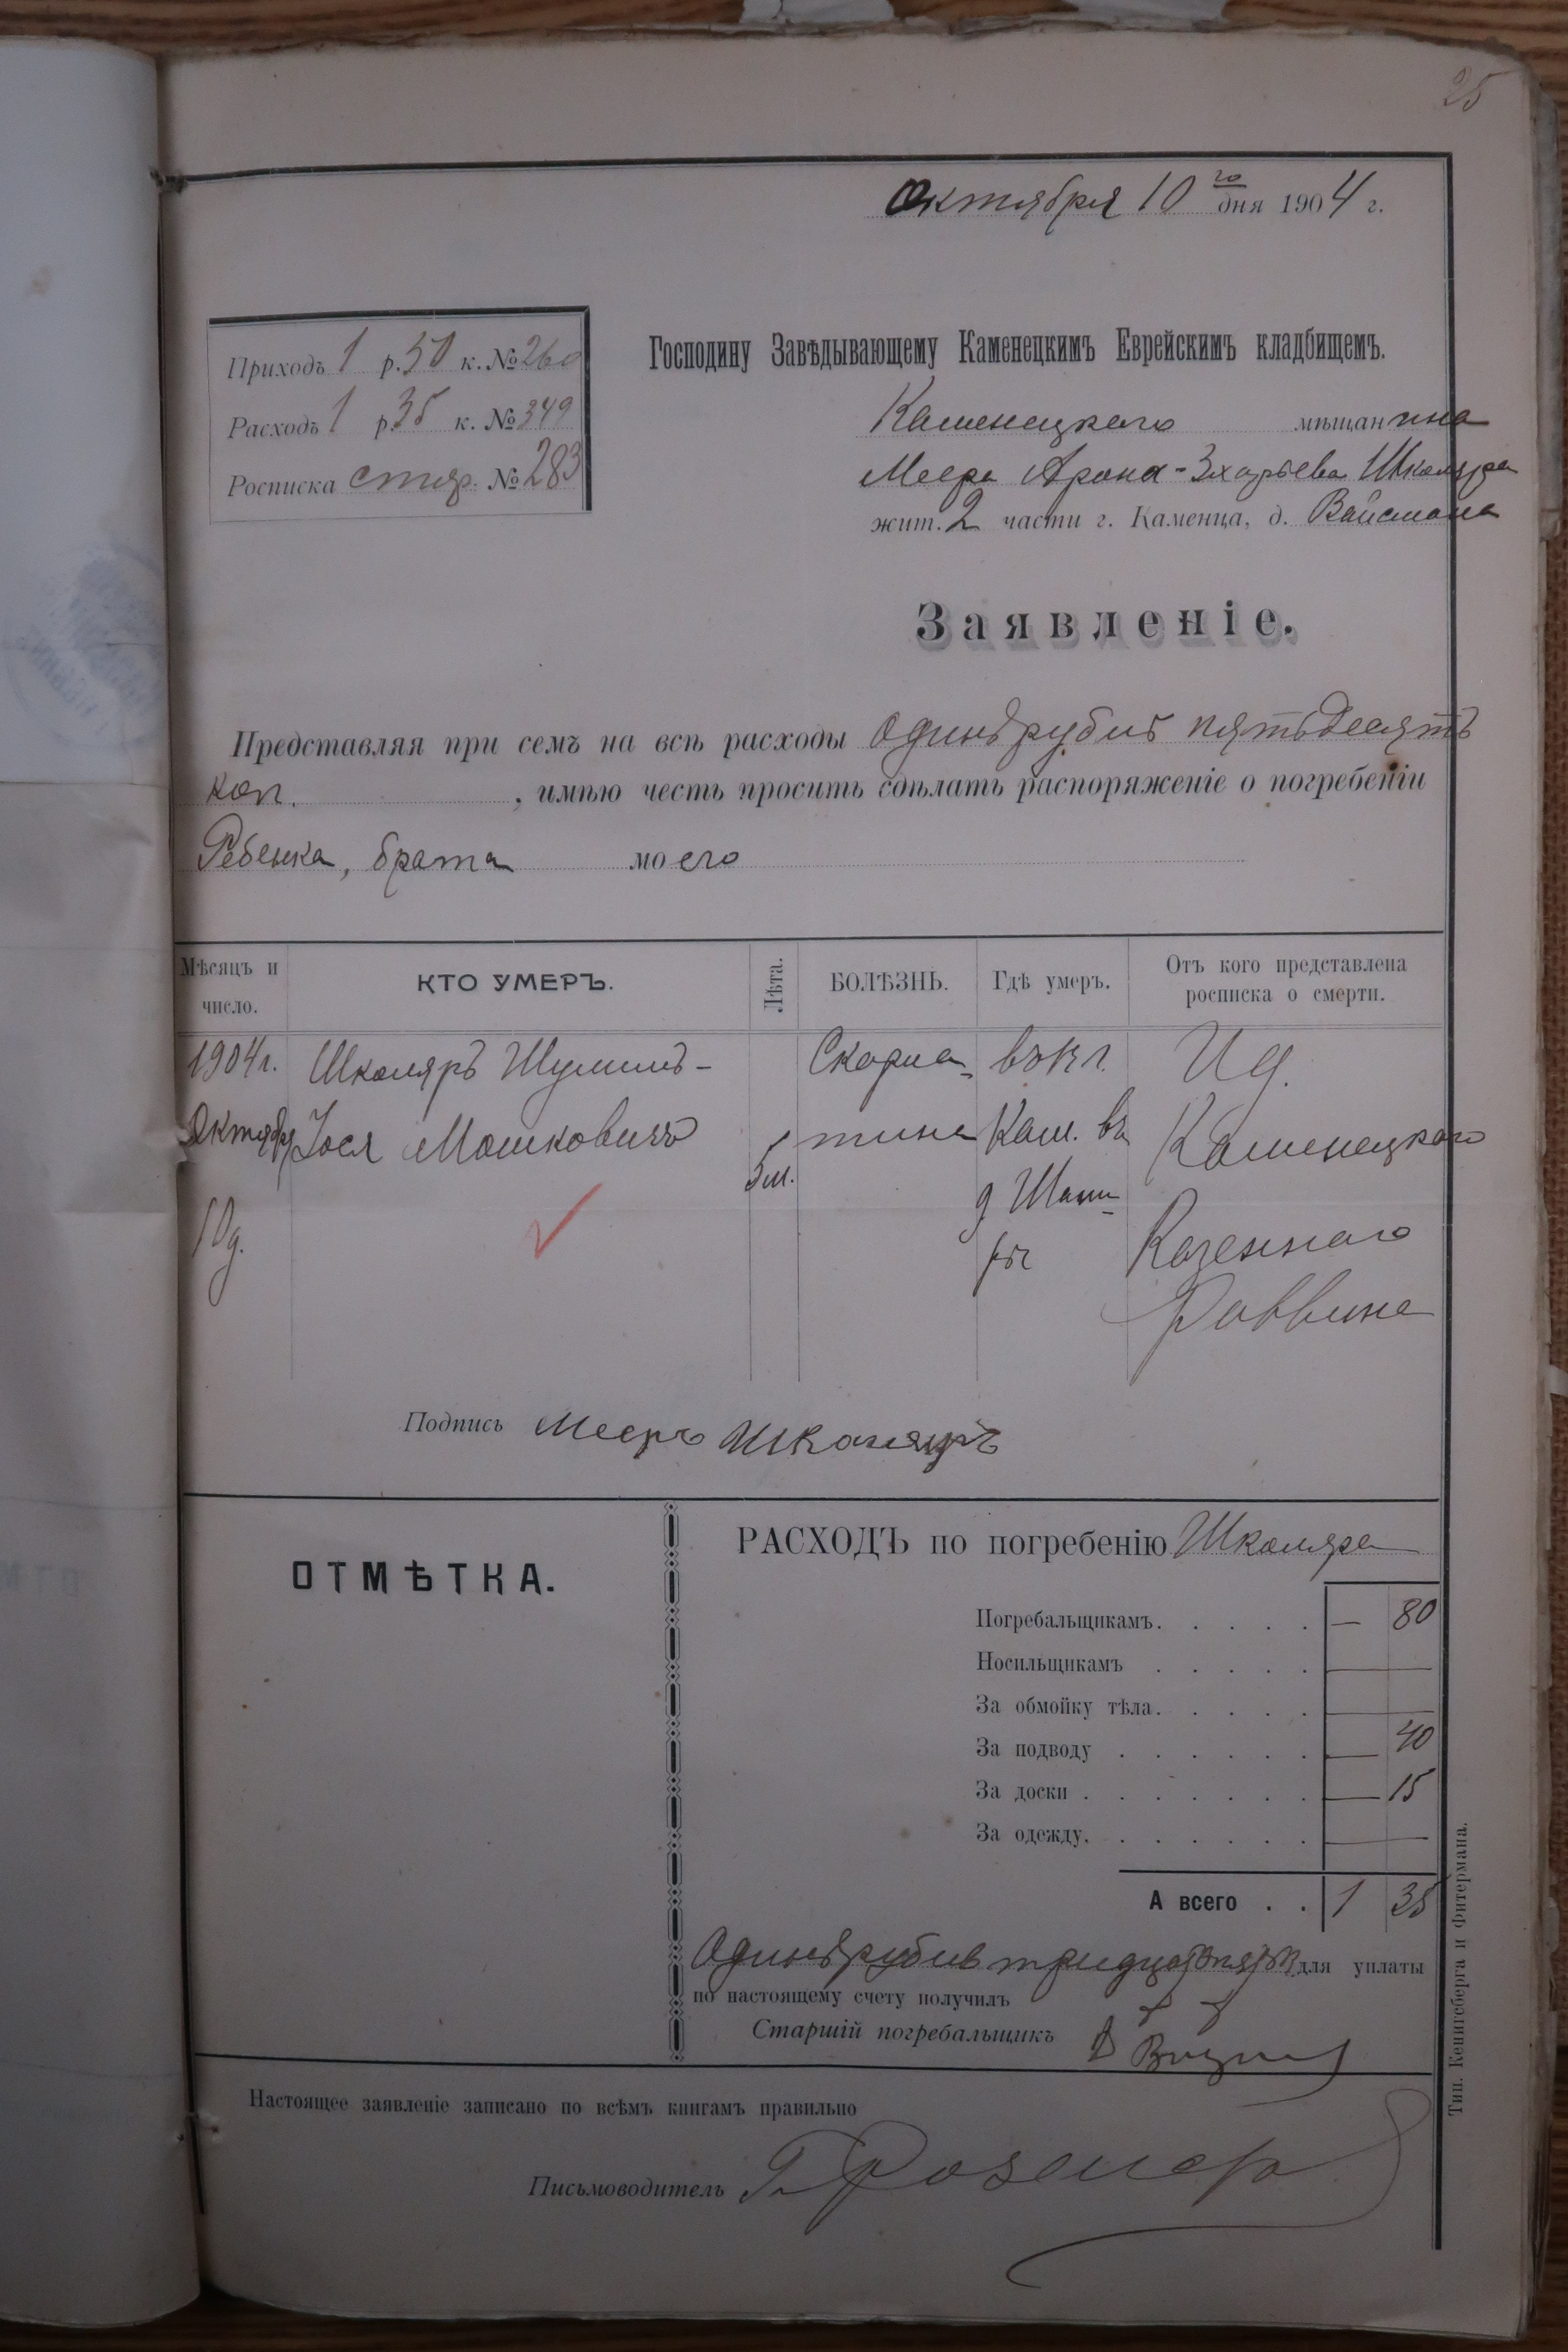 25
Октября 10го дня 1904 г.
Приходъ 1 р. 50 к. № 260
Расходъ 1 р. 35 к. № 349
Росписка стар. № 283
Господину Завѣдывающему Каменецкимъ Еврейскимъ кладбищемъ.
Каменецкаго мѣщанина
Меера Арона-Зхарьева Школяра
жит. 2 части г. Каменца, д. Вайсмана
Заявленіе.
Представляя при семъ на всѣ расходы Одинъ рубль пятьдесятъ
коп. , имѣю честь просить сдѣлать распоряженіе о погребеніи
Ребенка, брата моего
Мѣсяцъ и число. КТО УМЕРЪ. Лѣта. БОЛѢЗНЬ. Гдѣ умеръ. Отъ кого представлена росписка о смерти.
1904 г. Школяръ Шулимъ- Скарла- въ г. И д.
Октября Іося Мошковичъ 5 м. тина Кам. въ Каменецкаго
10 д. д Шапи- Казеннаго
ры Раввина
Подпись Мееръ Школяръ
ОТМѢТКА.
РАСХОДЪ по погребенію Школяра
Погребальщикамъ. . . . . — 80
Носильщикамъ . . . . . —
За обмойку тѣла. . . . . —
За подводу . . . . . . — 40
За доски . . . . . . . — 15
За одежду. . . . . . . —
А всего . . 1 35
Одинъ рубль тридцать пять к для уплаты
по настоящему счету получилъ
Старшій погребальщикъ
Настоящее заявленіе записано по всѣмъ книгамъ правильно
Письмоводитель Г. Розенер
Тип. Кенигсберга и Фитермана.